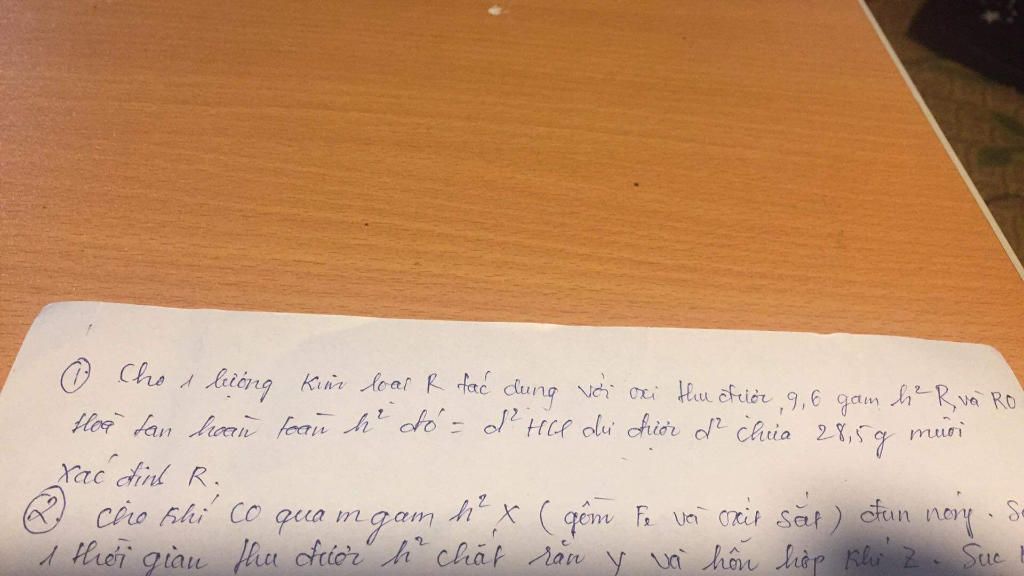 ① Cho 1 lượng kim loại R tác dụng với oxi thu được 9,6 gam h² R và RO
Hoà tan hoàn toàn h² đó = d² HCl dư được d² chứa 28,5g muối
Xác định R.
② Cho khí CO qua m gam h² X (gồm Fe và oxit sắt) đun nóng.
1 thời gian thu được h² chất rắn Y và hỗn hợp khí Z. Sục